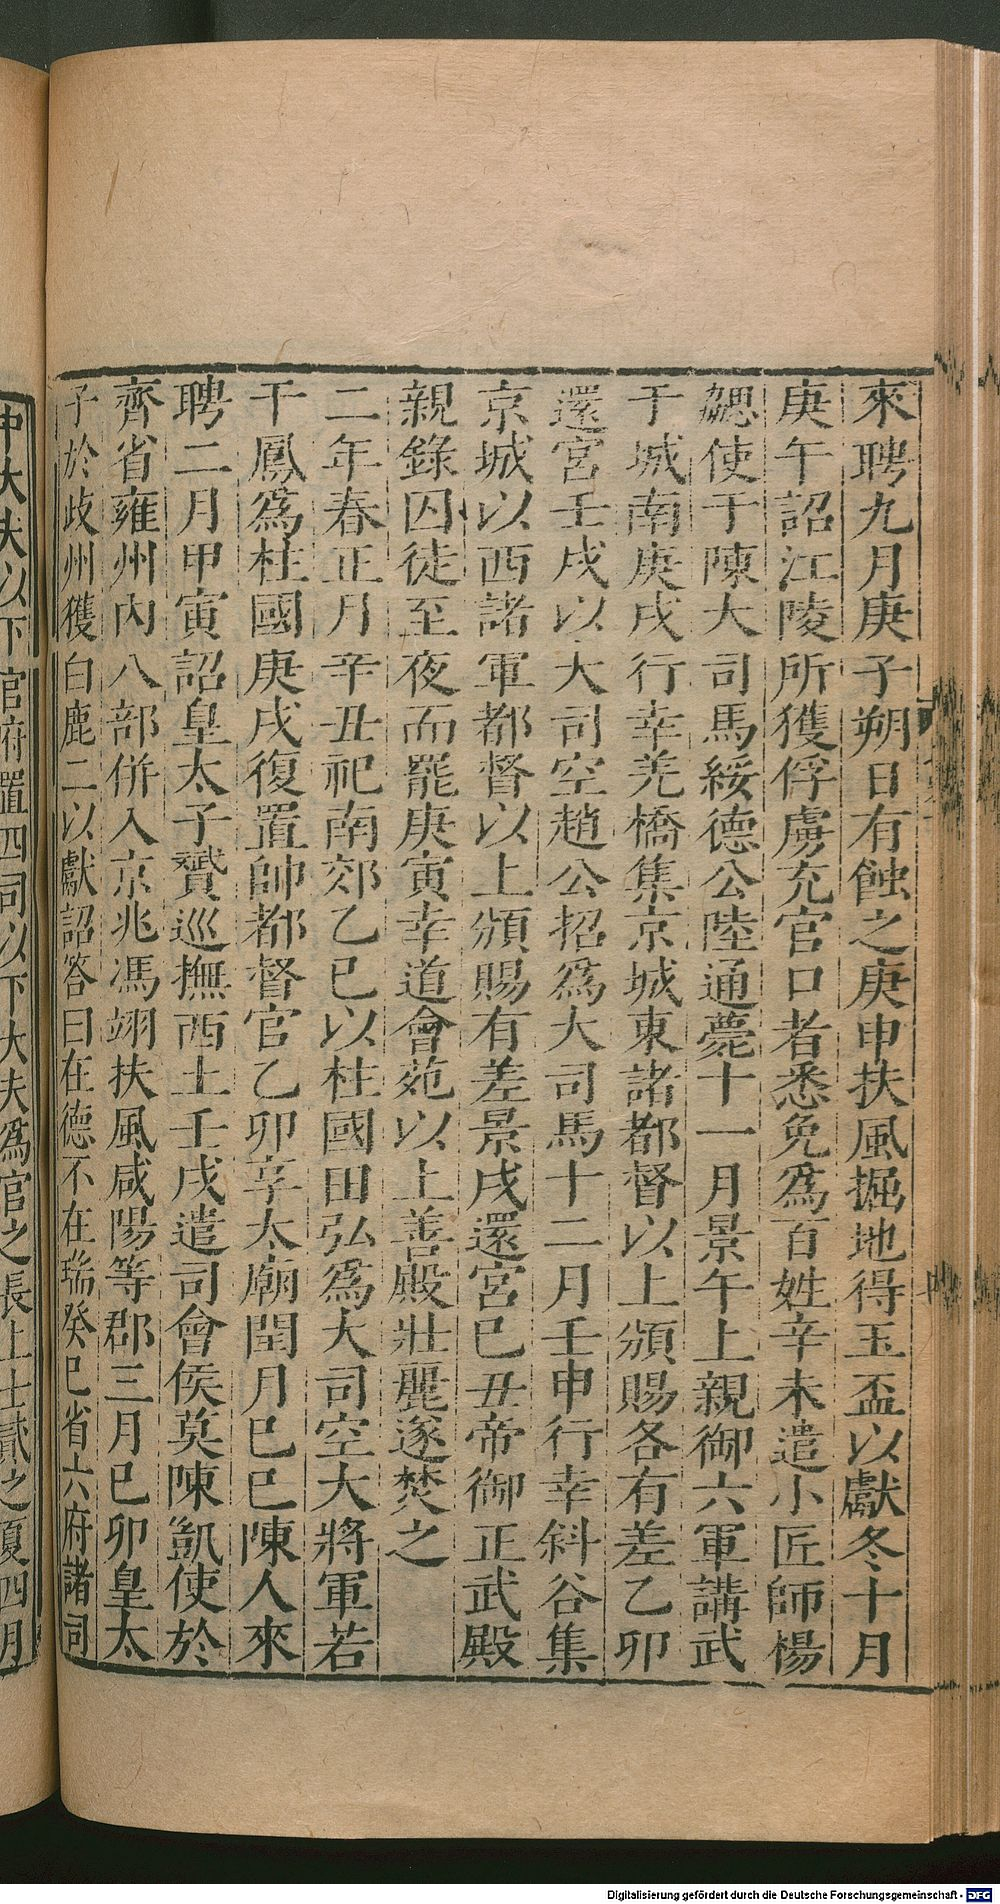 來聘九月庚子朔日有蝕之庚申扶風掘地得玉盃以獻冬十月
庚午詔江陵所獲俘虜充官口者悉免爲百姓辛未遣小匠師楊
勰使于陳大司馬綏德公陸通薨十一月景午上親御六軍講武
于城南庚戌行幸羌橋集京城東諸都督以上頒賜各有差乙卯
還宮壬戌以大司空趙公招爲大司馬十二月壬申行幸斜谷集
京城以西諸軍都督以上頒賜有差景戌還宮巳丑帝御正武殿
親錄囚徒至夜而罷庚寅幸道會苑以上善殿壯麗遂焚之
二年春正月辛丑祀南郊乙巳以柱國田弘爲大司空大將軍若
干鳳爲柱國庚戌復置帥都督官乙卯享太廟閏月巳巳陳人來
聘二月甲寅詔皇太子贇巡撫西土壬戌遣司會侯莫陳凱使於
齊省雍州內八部併入京兆馮翊扶風咸陽等郡三月巳卯皇太
子於歧州獲白鹿二以獻詔答曰在德不在瑞癸巳省六府諸司
中大夫以下官府置四司以下大夫爲官之長上士貳之夏四月
Digitalisierung gefördert durch die Deutsche Forschungsgemeinschaft - DFG